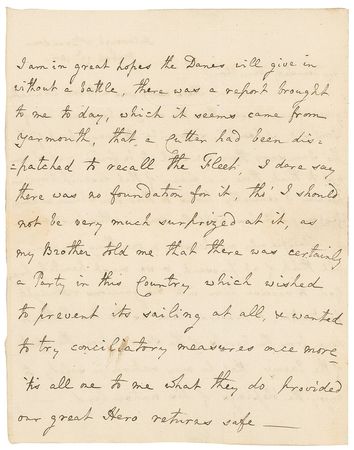 I am in great hopes the Danes will give in
without a battle, there was a report brought
to me to day, which it seems came from
Yarmouth, that a Cutter had been dis=
=patched to recall the Fleet, I dare say
there was no foundation for it, tho' I should
not be very much surprized at it, as
my Brother told me that there was certainly
a Party in this Country which wished
to prevent its sailing at all, & wanted
to try conciliatory measures once more
'tis all one to me what they do provided
our great Hero returns safe —